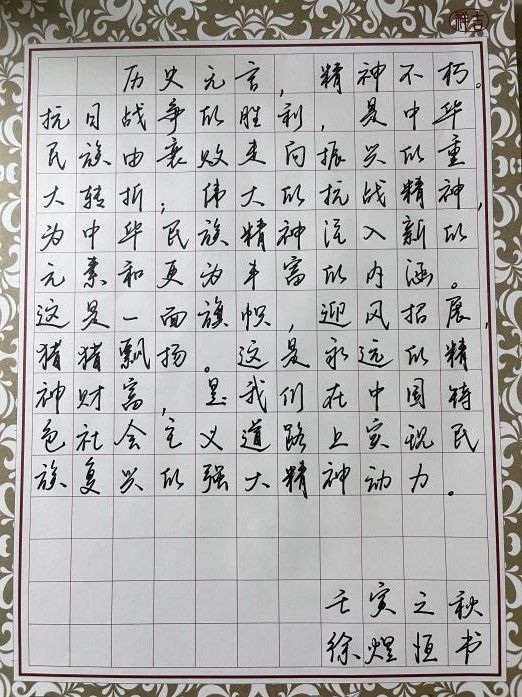 历史无言，精神不朽。
抗日战争的胜利，是中华
民族由衰败走向振兴的重
大转折；伟大的抗战精神，
为中华民族精神注入新的
元素和更为丰富的内涵。
这是一面旗帜，迎风招展，
猎猎飘扬。这是永远的精
神财富，是我们在中国特
色社会主义道路上实现民
族复兴的强大精神动力。
壬寅之秋
徐煜恒书